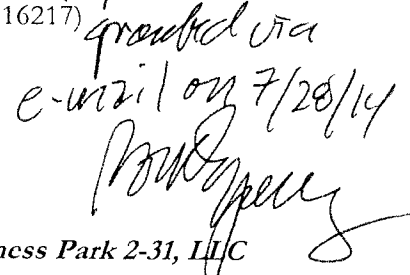 16217)
provided via
e-mail on 7/28/14
ness Park 2-31, LLC